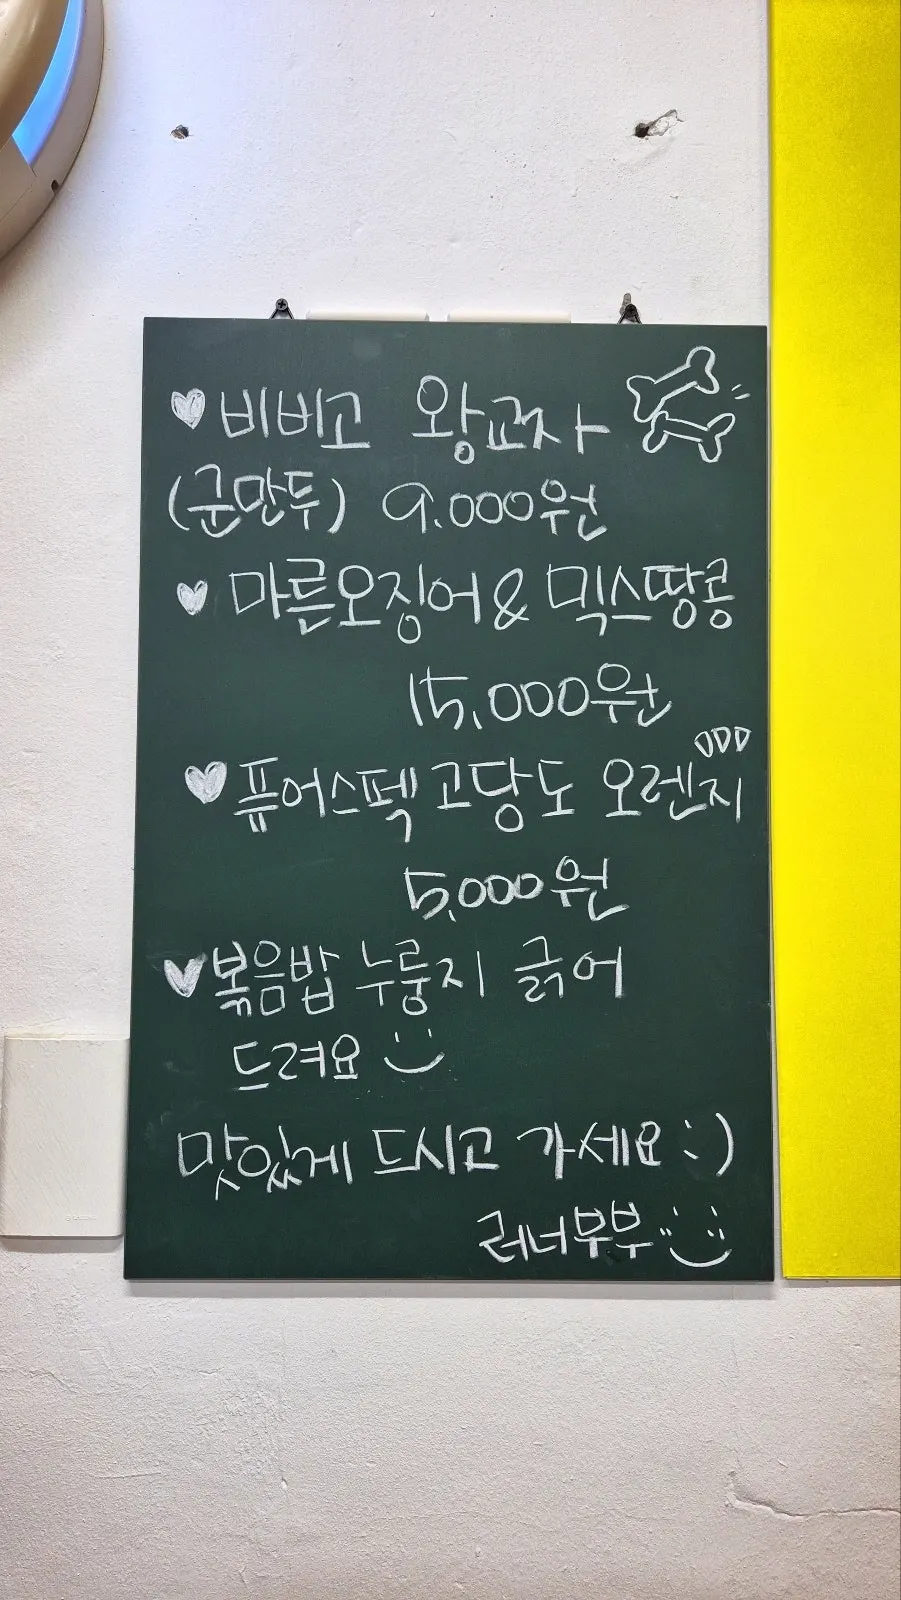 ♥비비고 왕교자
(군만두) 9.000원
♥ 마른오징어 & 믹스땅콩
15,000원
♥ 퓨어스펙 고당도 오렌지
5,000원
♥볶음밥 누룽지 긁어
드려요
맛있게 드시고 가세요 :)
러너부부